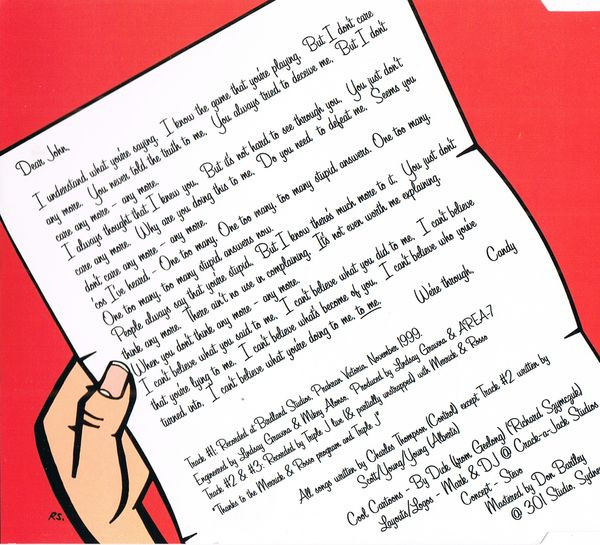 Dear John
I understand what you're saying. I know the game that you're playing. But I don't care
any more. You never told the truth to me. You always tried to deceive me. But I don't
care any more - any more.
I always thought that I knew you. But it's not hard to see through you. You just don't
care any more. Why are you doing this to me. Do you need to defeat me. Seems you
don't care any more - any more.
'cos I've heard - One too many. One too many, too many stupid answers. One too many.
One too many, too many stupid answers now.
People always say that you're stupid. But I know there's much more to it. You just don't
think any more. There ain't no use in complaining. It's not even worth me explaining.
When you don't think any more - any more.
I can't believe what you said to me. I can't believe what you did to me. I can't believe
that you're lying to me. I can't believe what's become of you. I can't believe who you've
turned into. I can't believe what you're doing to me, to me.
We're through. Candy
Track #1: Recorded at Birdland Studios. Prahran Victoria. November 1999.
Engineered by Lindsay Gravina & Mikey Alonso. Produced by Lindsay Gravina & AREA-7
Track #2 & #3- Recorded by Triple J live (& partially unstrapped) with Merrick & Rosso
"Thanks to the Merrick & Rosso program and Triple J"
All songs written by Charles Thompson (Control) except Track #2 written by
Scott/Young/Young (Alberts)
Cool Cartoons - By Dick (from Geelong) (Richard Szymczyk)
Layouts/Logos - Mark & DJ @ Crack-a-Jack Studios
Concept - Stevo
Mastered by Don Bartley
@ 301 Studio. Sydney
RS.